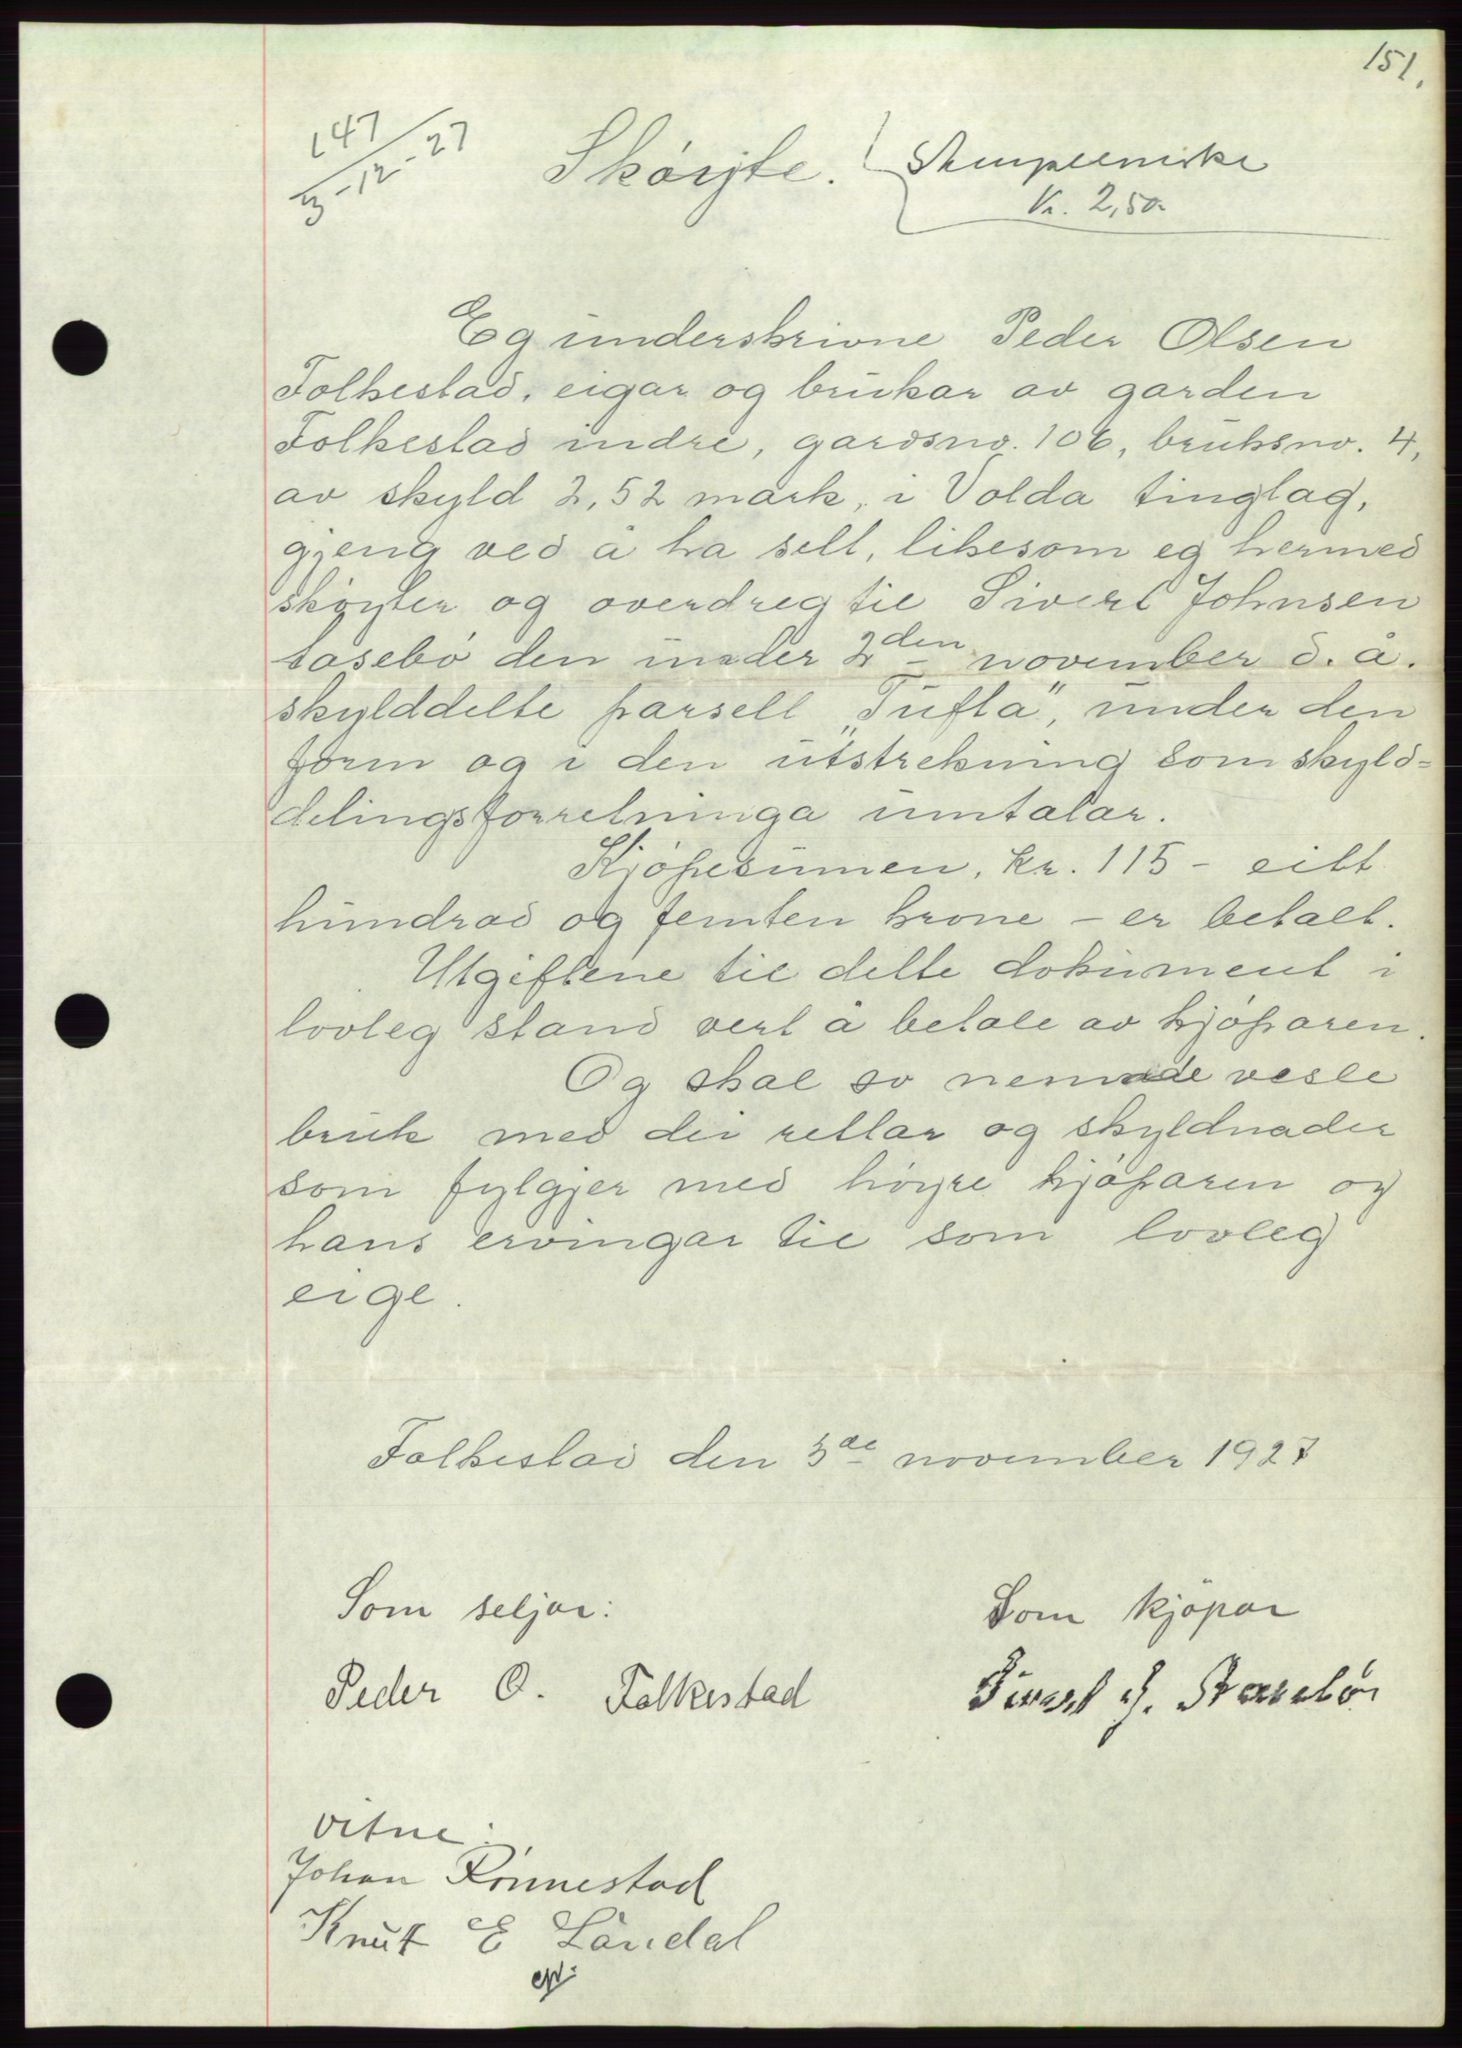 151.
147
3-12-27
Skøyte.
Stempelmerke
Kr. 2,50
Eg underskrivne Peder Olsen
Folkestad, eigar og brukar av garden
Folkestad indre, gardsno. 106, bruksno. 4,
av skyld 2,52 mark, i Volda tinglag,
gjeng ved å ha selt, likesom eg hermed
skøyter og overdreg til Sivert Johnsen
Aasebø den under 2den november d. å.
skylddelte parsell „Tufta", under den
form og i den utstrekning som skyld=
delingsforretninga umtalar.
Kjøpesumen, kr. 115 - eitt
hundrad og femten krone - er betalt.
Utgiftene til dette dokument i
lovleg stand vert å betale av kjøparen.
Og skal so nemnde vesle
bruk med dei rettar og skyldnader
som fylgjer med høyre kjøparen og
hans ervingar til som lovleg
eige.
Folkestad den 3de november 1927
Som seljar:
Som kjøpar
Peder O. Folkestad
Sivert J. Aasebø
vitne:
Johan Rønnestad
Knut E